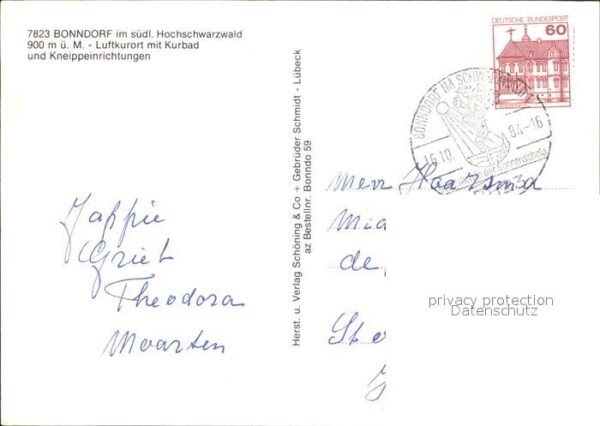 7823 BONNDORF im südl. Hochschwarzwald
900 m ü. M. - Luftkurort mit Kurbad
und Kneippeinrichtungen
DEUTSCHE BUNDESPOST
60
BONNDORF IM SCHWARZWALD
16.10. 84-16
Herst. u. Verlag Schöning & Co + Gebrüder Schmidt - Lübeck
az Bestellnr. Bonndo 59
Jappie
Griet
Theodora
Maarten
Mevr Haarsma
Mia
de
privacy protection
Datenschutz